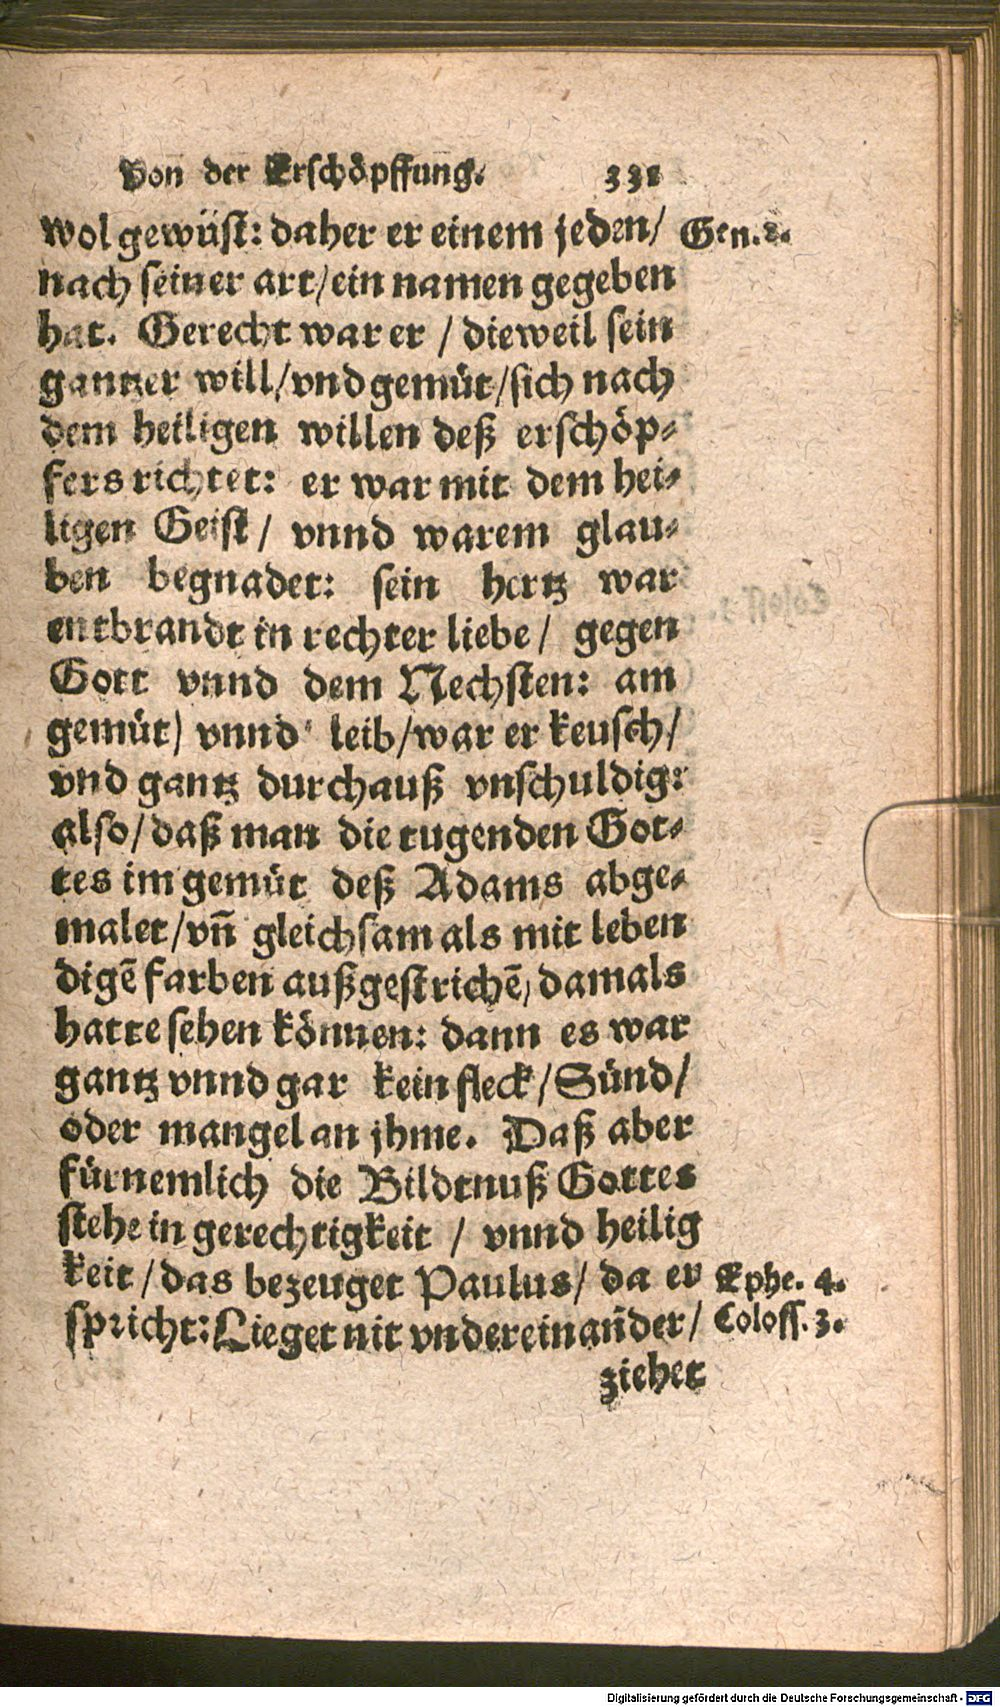 Von der Erschöpffung. 331
wol gewüst: daher er einem jeden/ Gen. 2.
nach seiner art/ein namen gegeben
hat. Gerecht war er / dieweil sein
gantzer will/vnd gemüt/sich nach
dem heiligen willen deß erschöp-
fers richtet: er war mit dem hei-
ligen Geist / vnnd warem glau-
ben begnadet: sein hertz war
entbrandt in rechter liebe / gegen
Gott vnnd dem Nechsten: am
gemüt/ vnnd leib/war er keusch/
vnd gantz durchauß vnschuldig:
also/daß man die tugenden Got-
tes im gemüt deß Adams abge-
malet/vn̄ gleichsam als mit leben
digē farben außgestrichē/damals
hatte sehen können: dann es war
gantz vnnd gar kein fleck/Sünd/
oder mangel an jhme. Daß aber
fürnemlich die Bildtnuß Gottes
stehe in gerechtigkeit / vnnd heilig
keit/das bezeuget Paulus/ da er Ephe. 4.
spricht:Lieget nit vndereinander/ Coloss. 3.
ziehet
Digitalisierung gefördert durch die Deutsche Forschungsgemeinschaft - DFG